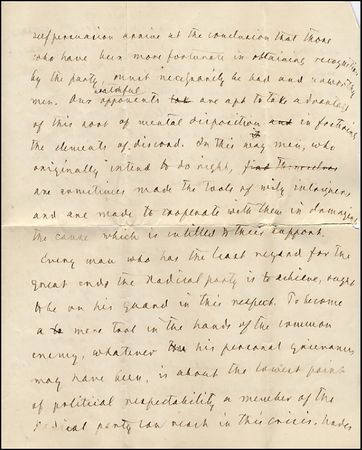 selfpersuasion arrive at the conclusion that those
who have been more fortunate in obtaining recognition
by the party, must necessarily be bad and unworthy
men. Our watchful opponents are apt to take advantage
of this sort of mental disposition and in fostering
the elements of discord. In this way men, who
originally intend to do right, find themselves
are sometimes made the tools of wily intriguers,
and are made to cooperate with them in damaging
the cause which is entitled to their support.
Every man who has the least regard for the
great ends the Radical party is to achieve, ought
to be on his guard in this respect. To become
a mere tool in the hands of the common
enemy, whatever his personal grievances
may have been, is about the lowest point
of political respectability a member of the
Radical party can reach in this crisis.